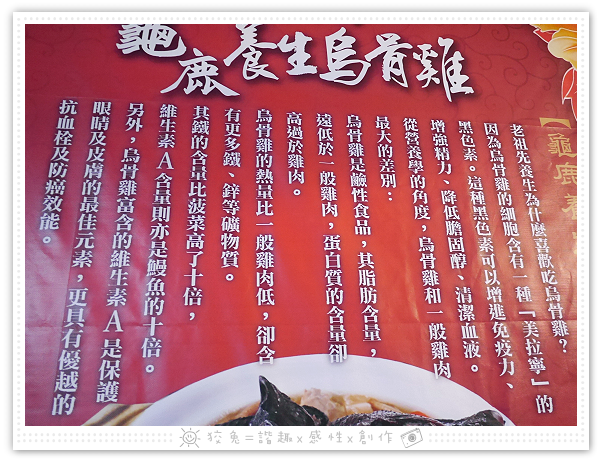 龜鹿養生烏骨雞
【龜鹿養
老祖先養生為什麼喜歡吃烏骨雞？
因為烏骨雞的細胞含有一種「美拉寧」的
黑色素。這種黑色素可以增進免疫力、
增強精力、降低膽固醇、清潔血液。
從營養學的角度，烏骨雞和一般雞肉
最大的差別：
烏骨雞是鹼性食品，其脂肪含量，
遠低於一般雞肉，蛋白質的含量卻
高過於雞肉。
烏骨雞的熱量比一般雞肉低，卻含
有更多鐵、鋅等礦物質。
其鐵的含量比菠菜高了十倍，
維生素A含量則亦是鰻魚的十倍。
另外，烏骨雞富含的維生素A是保護
眼睛及皮膚的最佳元素，更具有優越的
抗血栓及防癌效能。
狡兔=諧趣x感性x創作